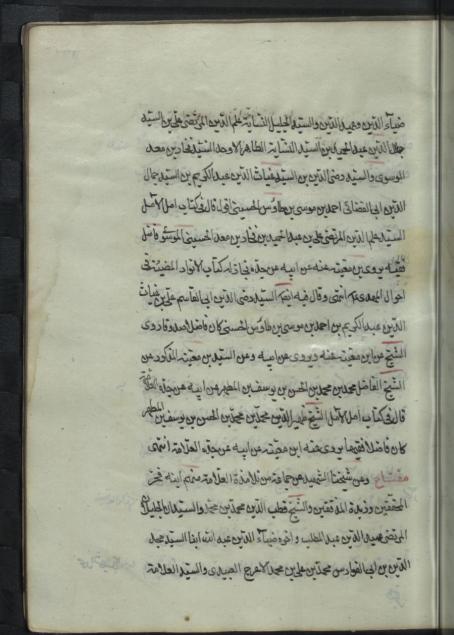 ضياء الدين وعميد الدين والسيد الجليل النسابة علم الدين المرتضى علي بن السيد
جلال الدين عبد الحميد بن السيد النسابة الطاهر الاوحد السيد فخار بن معد
الموسوي والسيد رضى الدين بن السيد غياث الدين عبد الكريم بن السيد جمال
الدين ابي الفضائل احمد بن موسى بن طاوس الحسيني اقول قال في كتاب امل الآمل
السيد علم الدين المرتضى علي بن عبد الحميد بن فخار بن معد الحسيني الموسوي فاضل
فقيه يروي ابن معية عنه عن ابيه عن جده فخار له كتاب الانوار المضيئة في
احوال المهدي ع انتهى وقال فيه ايضا السيد رضى الدين ابي القاسم علي بن غياث
الدين عبد الكريم بن احمد بن موسى بن طاوس الحسيني كان فاضلا صدوقا روى
الشيخ عن ابن معية عنه ويروي عن ابيه وعن السيد بن معية المذكور عن
الشيخ الفاضل محمد بن محمد بن الحسن بن يوسف بن المطهر عن ابيه عن جده العلامة
قال في كتاب امل الآمل الشيخ ظهير الدين محمد بن محمد بن الحسن بن يوسف بن المطهر
كان فاضلا فقيها يروي عنه ابن معية عن ابيه عن جده العلامة انتهى
مفتاح وعن شيخنا الشهيد عن جماعة من تلامذة العلامة منهم ابنه فخر
المحققين وزبدة المدققين والشيخ قطب الدين محمد بن محمد والسيدان الجليلان
المرتضى عميد الدين عبد المطلب واخوه ضياء الدين عبد الله ابنا السيد مجد
الدين بن ابي الفوارس محمد بن علي بن محمد الاعرج العبيدي والسيد العلامة